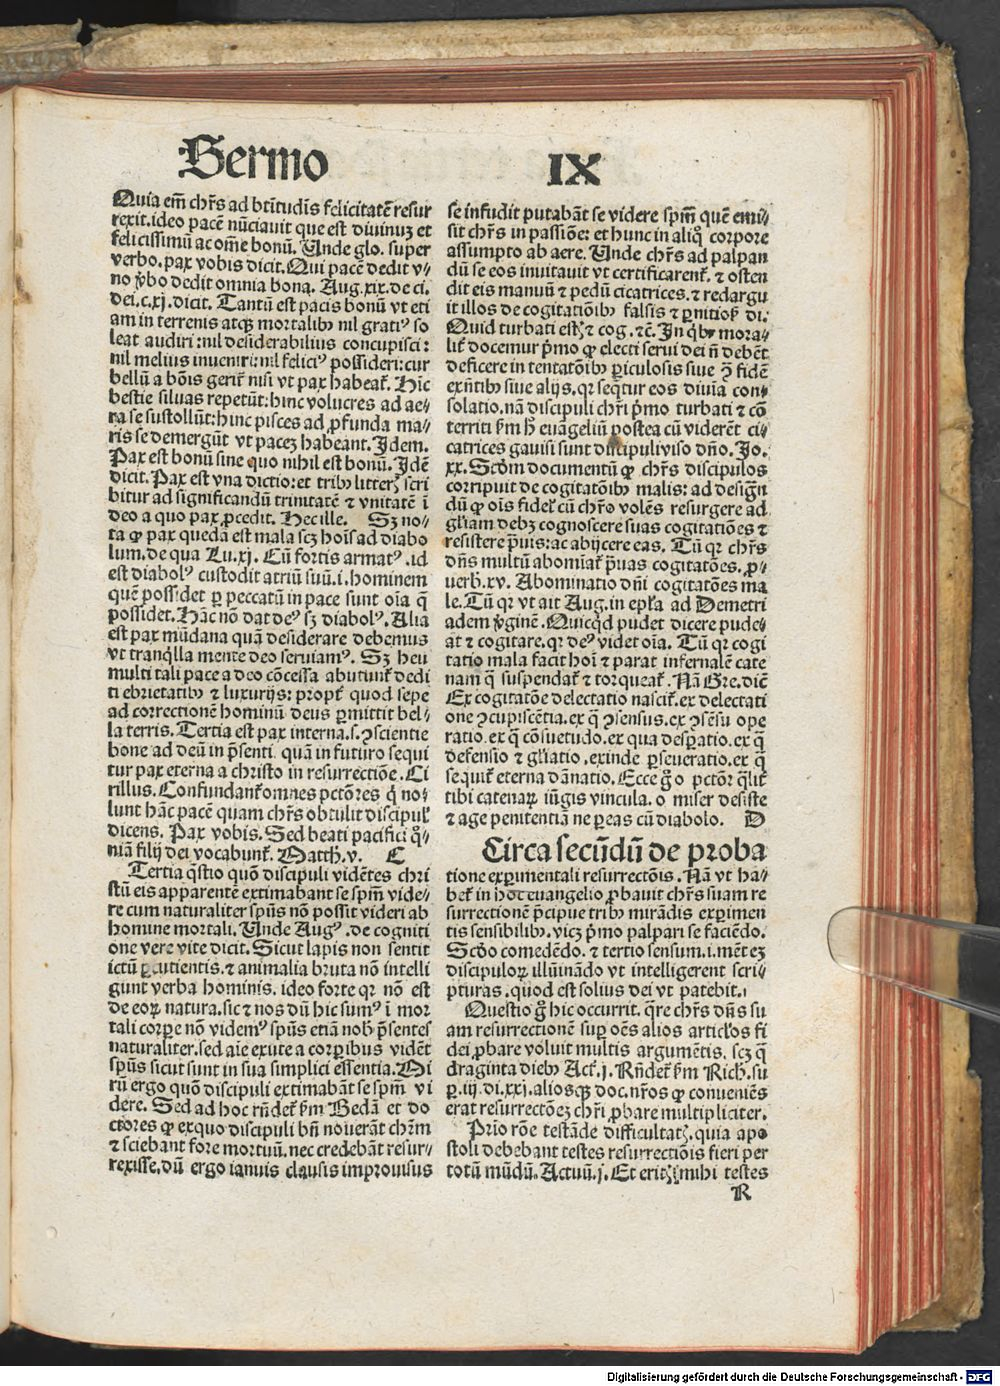 Sermo IX
Quia em̄ chr̄s ad btītudīs felicitatē resur
rexit. ideo pacē nūciauit que est diuinuʒ et
felicissimū ac om̄e bonū. Unde glo. super
verbo. pax vobis dicit. Qui pacē dedit v⸗
no ṽbo dedit omnia bona. Aug. xix. de ci.
dei. c. xj. dicit. Tantū est pacis bonū vt eti
am in terrenis atqʒ mortalibꝰ nil gratiꝰ so
leat audiri: nil desiderabilius concupisci:
nil melius inueniri: nil feliciꝰ possideri: cur
bellū a bōis gerit̄ nisi vt pax habeat̄. Hīc
bestie siluas repetūt: hinc volucres ad ae⸗
ra se sustollūt: hinc pisces ad ꝓfunda ma⸗
ris se demergūt vt paceʒ habeant. Idem.
Pax est bonū sine quo nihil est bonū. Idē
dicit. Pax est vna dictio: et tribꝰ litterꝭ scri
bitur ad significandū trinitatē ⁊ vnitatē ī
deo a quo pax ꝓcedit. Hec ille. Sʒ no⸗
ta ꝙ pax quedā est mala scʒ hoīs ad diabo
lum. de qua Lu. xj. Cū fortis armatꝰ. id
est diabolꝰ custodit atriū suū. i. hominem
quē possidet ꝑ peccatū in pace sunt oīa q̄
possidet. Hāc nō dat deꝰ sʒ diabolꝰ. Alia
est pax mūdana quā desiderare debemus
vt tranq̇lla mente deo seruiamꝰ. Sʒ heu
multi tali pace a deo cōcessa abutunt̄ dedi
ti ebrietatibꝰ ⁊ luxurijs: propt̄ quod sepe
ad correctionē hominū deus ꝑmittit bel⸗
la terris. Tertia est pax interna. s. ꝯscientie
bone ad deū in p̄senti. quā in futuro sequi
tur pax eterna a christo in resurrectiōe. Ci
rillus. Confundant̄ omnes pctōres q̇ no⸗
lunt hāc pacē quam chr̄s obtulit discipul̄
dicens. Pax vobis. Sed beati pacifici q̊⸗
niā filij dei vocabunt̄. Matth. v. C
Tertia q̄stio quō discipuli vidētes chri
stū eis apparentē extimabant se spm̄ vide⸗
re cum naturaliter spūs nō possit videri ab
homine mortali. Unde Augꝰ. de cogniti
one vere vite dicit. Sicut lapis non sentit
ictū ꝑcutientis. ⁊ animalia bruta nō intelli
gunt verba hominis. ideo forte qꝛ nō est
de eoꝝ natura. sic ⁊ nos dū hic sumꝰ ī mor
tali corꝑe nō videmꝰ spūs etiā nobꝭ p̄sentes
naturaliter. sed aīe exute a corꝑibus vidēt
spūs sicut sunt in sua simplici essentia. Mi
rū ergo quō discipuli extimabāt se spm̄ vi
dere. Sed ad hoc rn̄det̄ ẜm Bedā et do
ctores ꝙ ex quo discipuli bn̄ nouerāt chrm̄
⁊ sciebant fore mortuū. nec credebāt resur⸗
rexisse. dū ergo ianuis clausis improuisus
se infudit putabāt se videre spm̄ quē emi⸗
sit chr̄s in passiōe: et hunc in aliq̊ corpore
assumpto ab aere. Unde chr̄s ad palpan
dū se eos inuitauit vt certificarent̄. ⁊ osten
dit eis manuū ⁊ pedū cicatrices. ⁊ redargu
it illos de cogitatiōibꝰ falsis ⁊ ꝑnitiosꝭ di.
Quid turbati estꝭ ⁊ cog. ⁊c̄. In q̇bꝰ mora⸗
lit̄ docemur p̄mo ꝙ electi serui dei n̄ debēt
deficere in tentatōibꝰ ꝑiculosis siue ꝯ̄ fidē
exn̄tibꝰ siue alijs. qꝛ seq̄tur eos diuīa con⸗
solatio. nā discipuli chr̄i p̄mo turbati ⁊ cō
territi ẜm h̄ euāgeliū postea cū viderēt ci⸗
catrices gauisi sunt discipuli viso dn̄o. Jo.
xx. Scd̄m documentū ꝙ chr̄s discipulos
corripuit de cogitatōibꝰ malis: ad design̄
dū ꝙ oīs fidel̄ cū chr̄o volēs resurgere ad
gl̄iam debʒ cognoscere suas cogitatiōes ⁊
resistere p̄uis: ac abijcere eas. Tū qꝛ chr̄s
dn̄s multū abomiat̄ p̄uas cogitatōes. ꝓ⸗
uerb. xv. Abominatio dn̄i cogitatōes ma
le. Tū qꝛ vt ait Aug. in epl̄a ad Demetri
adem ṽginē. Quicq̇d pudet dicere pude⸗
at ⁊ cogitare. qꝛ deꝰ videt oīa. Tū qꝛ cogi
tatio mala facit hoī ⁊ parat infernalē cate
nam q̄ suspendat̄ ⁊ torqueat̄. Nā Gre. dic̄
Ex cogitatōe delectatio nascit̄. ex delectati
one ꝯcupiscētia. ex q̄ ꝯsensus. ex ꝯsēsu ope
ratio. ex q̄ cōsuetudo. ex qua despatio. ex q̄
defensio ⁊ gl̄iatio. exinde ꝑseueratio. ex q̄
sequit̄ eterna dānatio. Ecce g̊ o pctōr q̄lit̄
tibi catenaꝝ iūgis vincula. o miser desiste
⁊ age penitentiā ne ꝑeas cū diabolo. D
Circa secūdū de proba
tione exꝑimentali resurrectōis. Nā vt ha⸗
bet̄ in hoc euangelio ꝓbauit chr̄s suam re
surrectionē p̄cipue tribꝰ mirādis exꝑimen
tis sensibilibꝰ. vicʒ p̄mo palpari se faciēdo.
Scd̄o comedēdo. ⁊ tertio sensum. i. mēteʒ
discipuloꝝ illūinādo vt intelligerent scri⸗
pturas. quod est solius dei vt patebit.
Questio g̊ hic occurrit. q̄re chr̄s dn̄s su
am resurrectionē suꝑ oēs alios articl̄os fi
dei ꝓbare voluit multis argumētis. scʒ q̄
draginta diebꝰ Act̄. j. Rn̄det̄ ẜm Rich. su
ꝑ. iij. di. xxj. aliosqʒ doc. nr̄os ꝙ conueniēs
erat resurrectōeʒ chr̄i ꝓbare multipliciter.
Prīo rōe testāde difficultatꝭ. quia apo
stoli debebant testes resurrectiōis fieri per
totū mūdū. Actuū. j. Et eritꝭ mihi testes
R
Digitalisierung gefördert durch die Deutsche Forschungsgemeinschaft - DFG